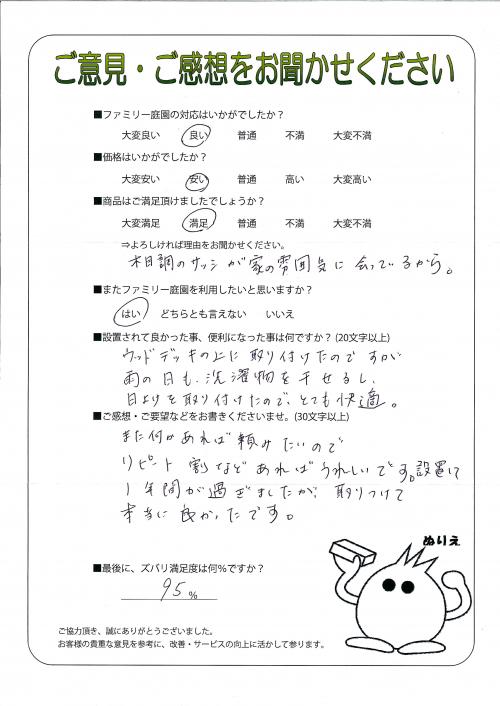 ご意見・ご感想をお聞かせください
■ファミリー庭園の対応はいかがでしたか？
大変良い 良い 普通 不満 大変不満
■価格はいかがでしたか？
大変安い 安い 普通 高い 大変高い
■商品はご満足頂けましたでしょうか？
大変満足 満足 普通 不満 大変不満
⇒よろしければ理由をお聞かせください。
木目調のサッシが家の雰囲気に合っているから。
■またファミリー庭園を利用したいと思いますか？
はい どちらとも言えない いいえ
■設置されて良かった事、便利になった事は何ですか？(20文字以上)
ウッドデッキの上に取り付けたのですが
雨の日も、洗濯物を干せるし、
日よけを取り付けたので、とても快適。
■ご感想・ご要望などをお書きくださいませ。(30文字以上)
また何かあれば頼みたいので
リピート割などあればうれしいです。設置して
1年間が過ぎましたが、取りつけて
本当に良かったです。
ぬりえ
■最後に、ズバリ満足度は何%ですか？
95%
ご協力頂き、誠にありがとうございました。
お客様の貴重な意見を参考に、改善・サービスの向上に活かして参ります。